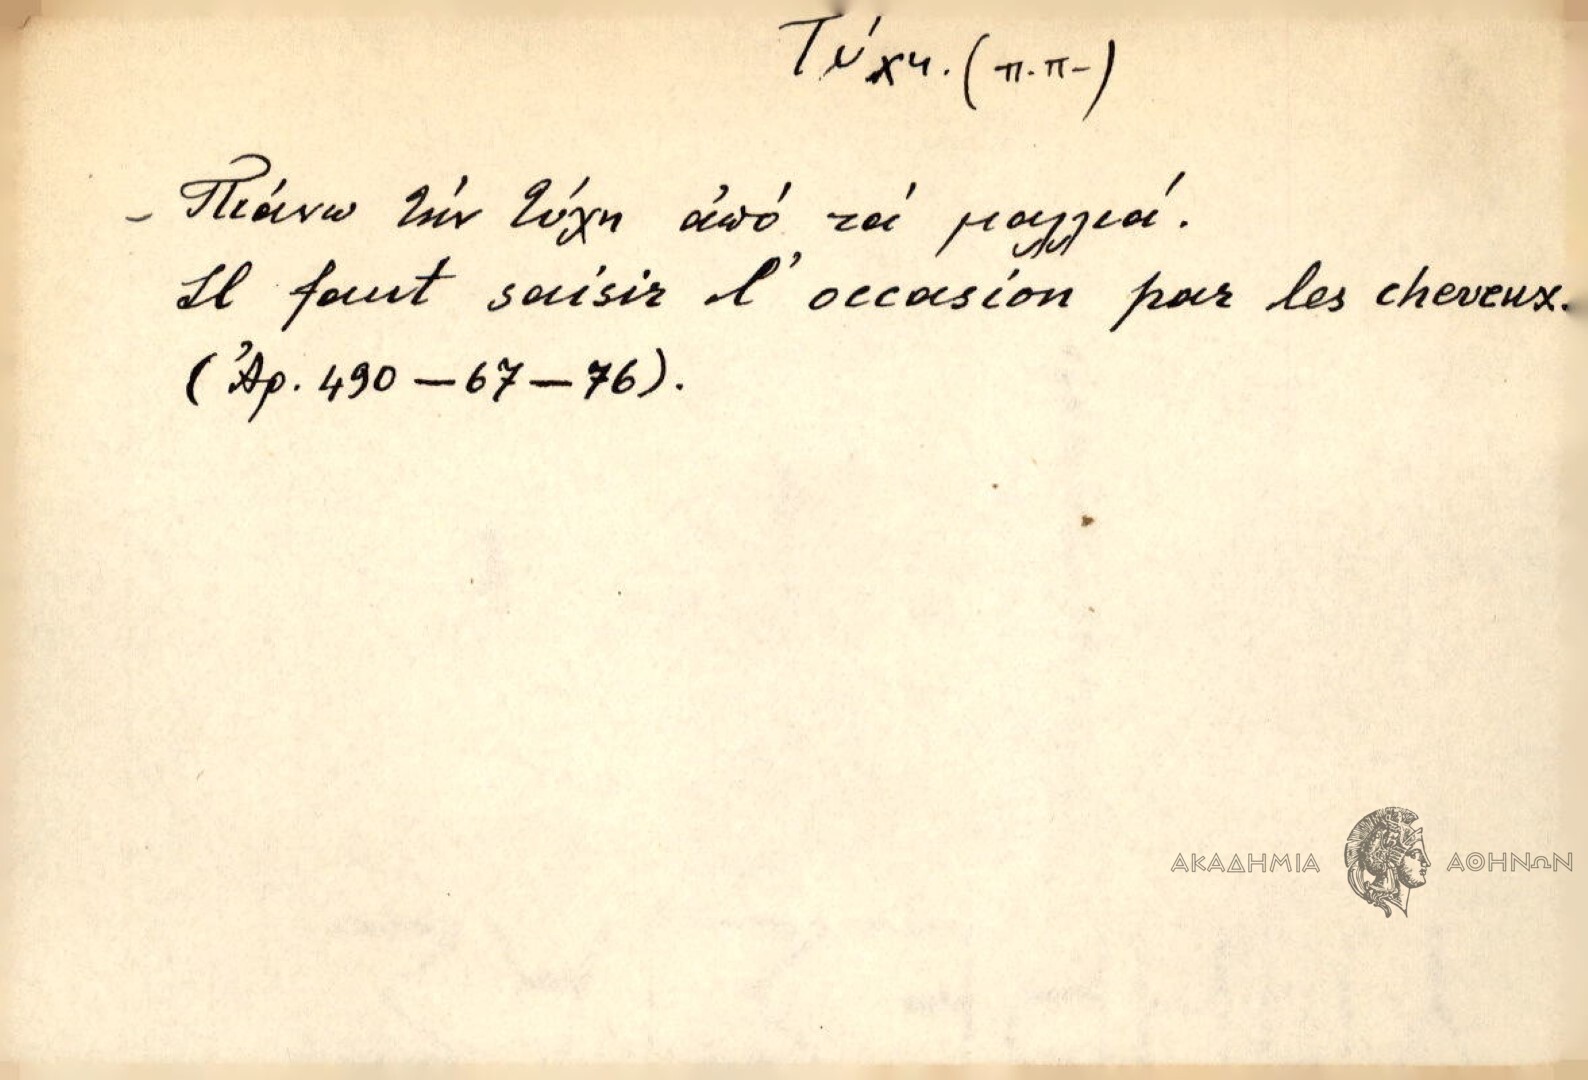 Τύχη. (π.π-)
- Πιάνω τήν τύχη ἀπό τά μαλλιά.
Il faut saisir l'occasion par les cheveux.
(Ἀρ. 490 — 67 — 76).
ΑΚΑΔΗΜΙΑ ΑΘΗΝΩΝ